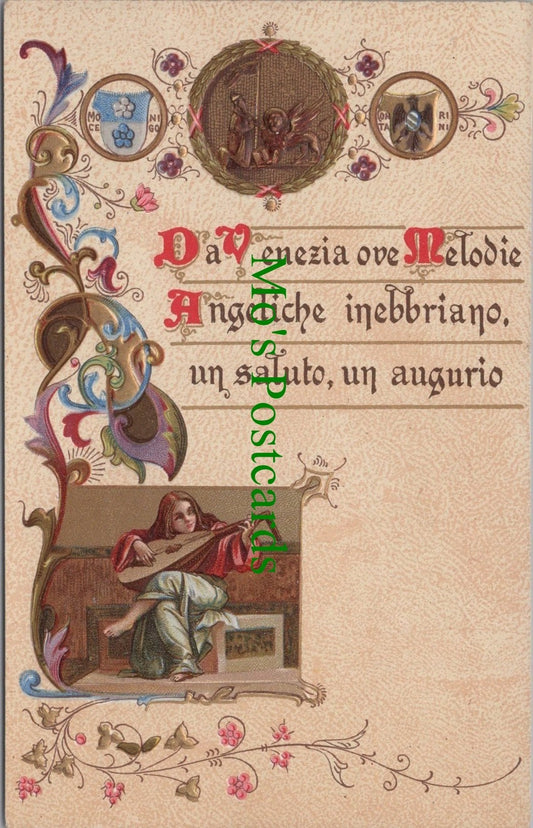 MO CE NI GO
CON TA RI NI
Da Venezia ove Melodie
Angeliche inebbriano,
un saluto, un augurio
Mo's Postcards